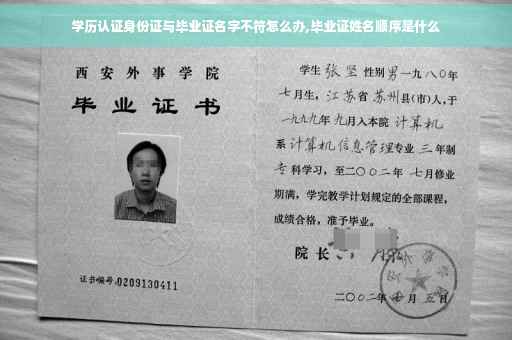 学历认证身份证与毕业证名字不符怎么办,毕业证姓名顺序是什么
西安外事学院
毕业证书
证书编号:0209130411
学生 张坚 性别男 一九八〇年
七月生，江苏省苏州县(市)人,于
一九九九年九月入本院 计算机
系 计算机信息管理专业 三年制
专科学习，至二〇〇二年七月修业
期满，学完教学计划规定的全部课程，
成绩合格，准予毕业。
院长
二〇〇二年 月五日